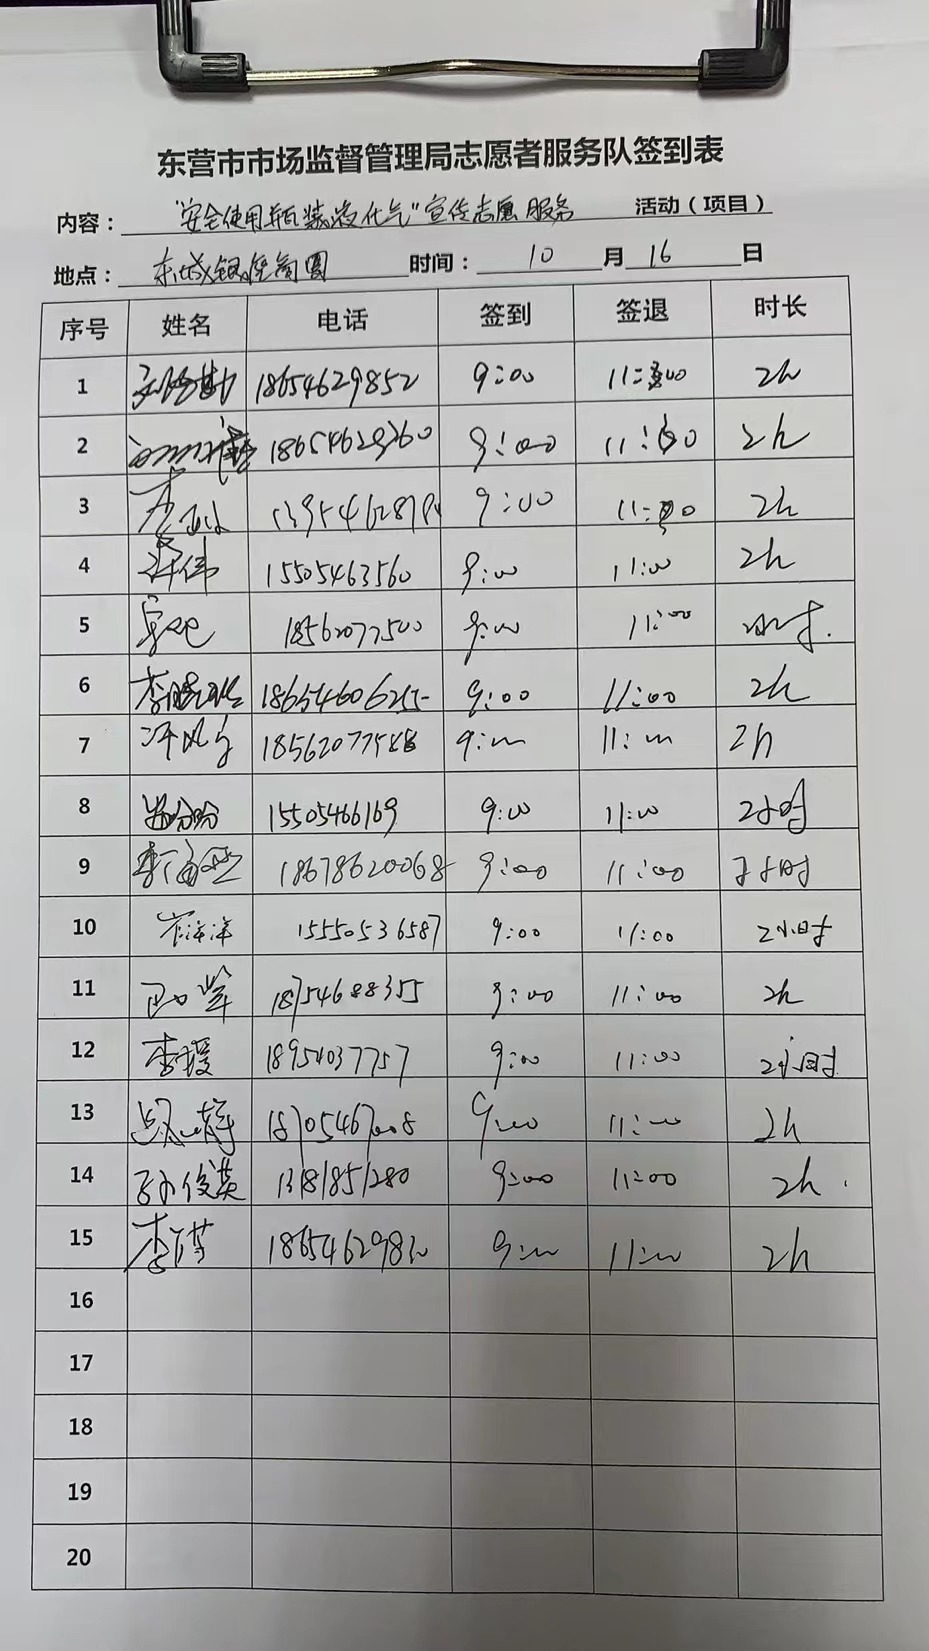 东营市市场监督管理局志愿者服务队签到表
内容： "安全使用瓶装液化气"宣传志愿服务 活动（项目）
地点： 东城银座商圈 时间： 10 月 16 日
序号 姓名 电话 签到 签退 时长
1 18654629852 9:00 11:00 2h
2 9:00 11:00 2h
3 9:00 11:00 2h
4 伟 15505463560 9:00 11:00 2h
5 18562077500 9:00 11:00
6 李晓 9:00 11:00 2h
7 9:00 11:00 2h
8 15505466169 9:00 11:00 2小时
9 李 18678620068 9:00 11:00 2小时
10 崔洋洋 15550536587 9:00 11:00 2小时
11 18754688355 9:00 11:00 2h
12 李媛 18954037757 9:00 11:00 2小时
13 9:00 11:00 2h
14 孙俊英 13181851280 9:00 11:00 2h.
15 李 9:00 11:00 2h
16
17
18
19
20